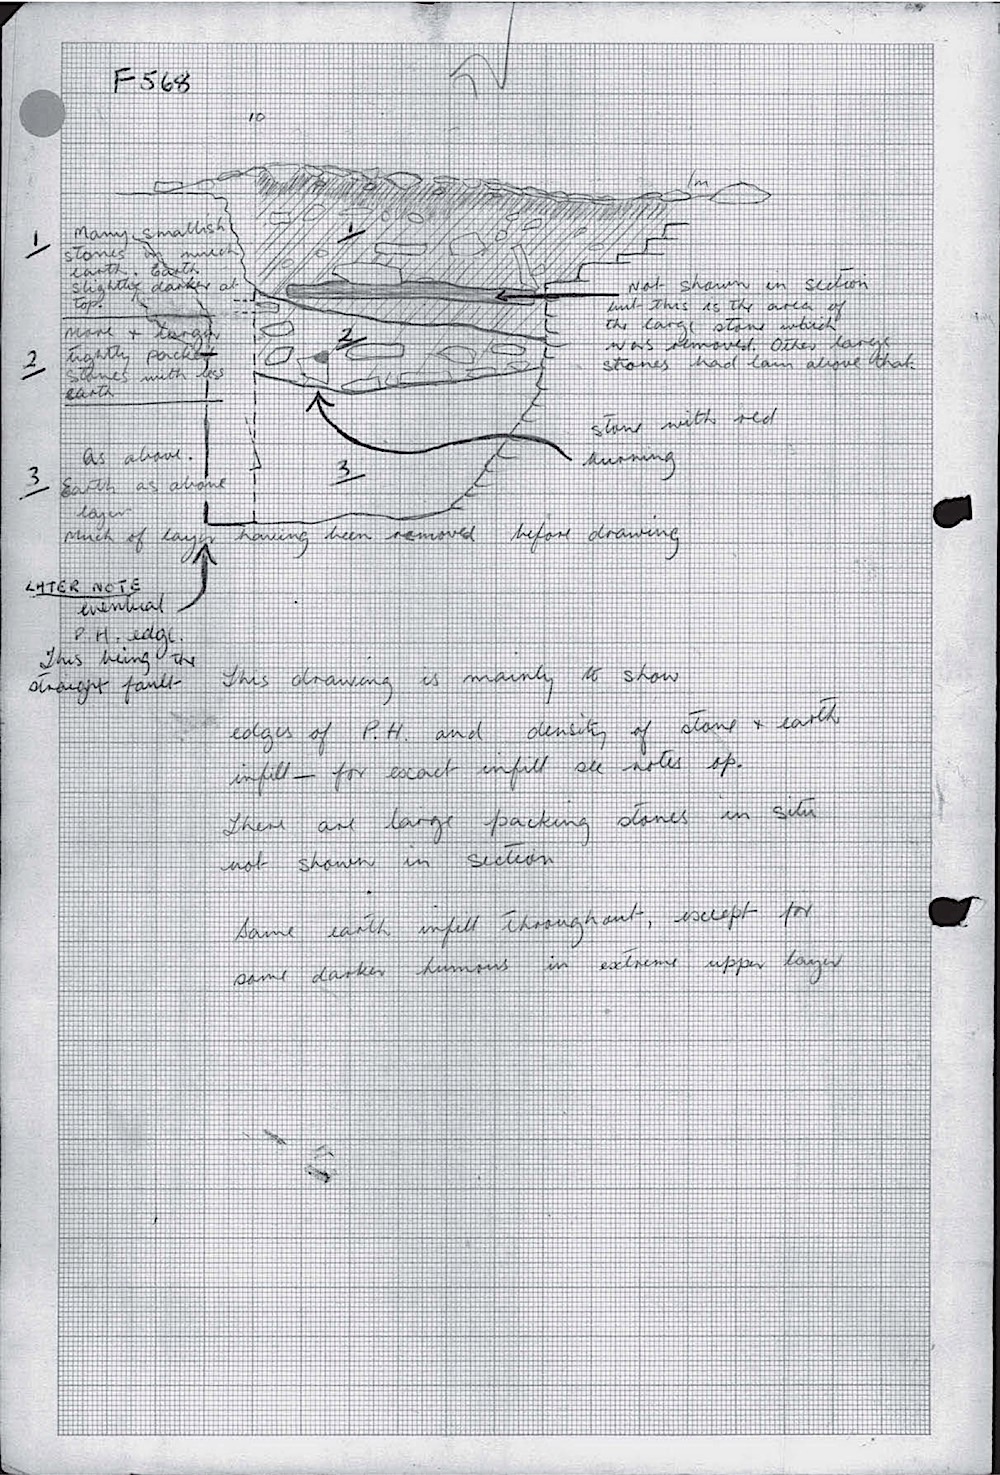 F568
10
1m
1
Many smallish
stones in much
earth. Earth
slightly darker at
top
1
Not shown in section
but this is the area of
the large stone which
was removed. Other large
stones had lain above that.
2
More + larger
tightly packed
stones with less
earth
2
stone with red
burning
3
As above.
Earth as above
layer
Much of layer having been removed before drawing
3
LATER NOTE
eventual
P.H. edge.
This being the
straight fault
This drawing is mainly to show
edges of P.H. and density of stone + earth
infill — for exact infill see notes op.
There are large packing stones in situ
not shown in section
Same earth infill throughout, except for
some darker humous in extreme upper layer